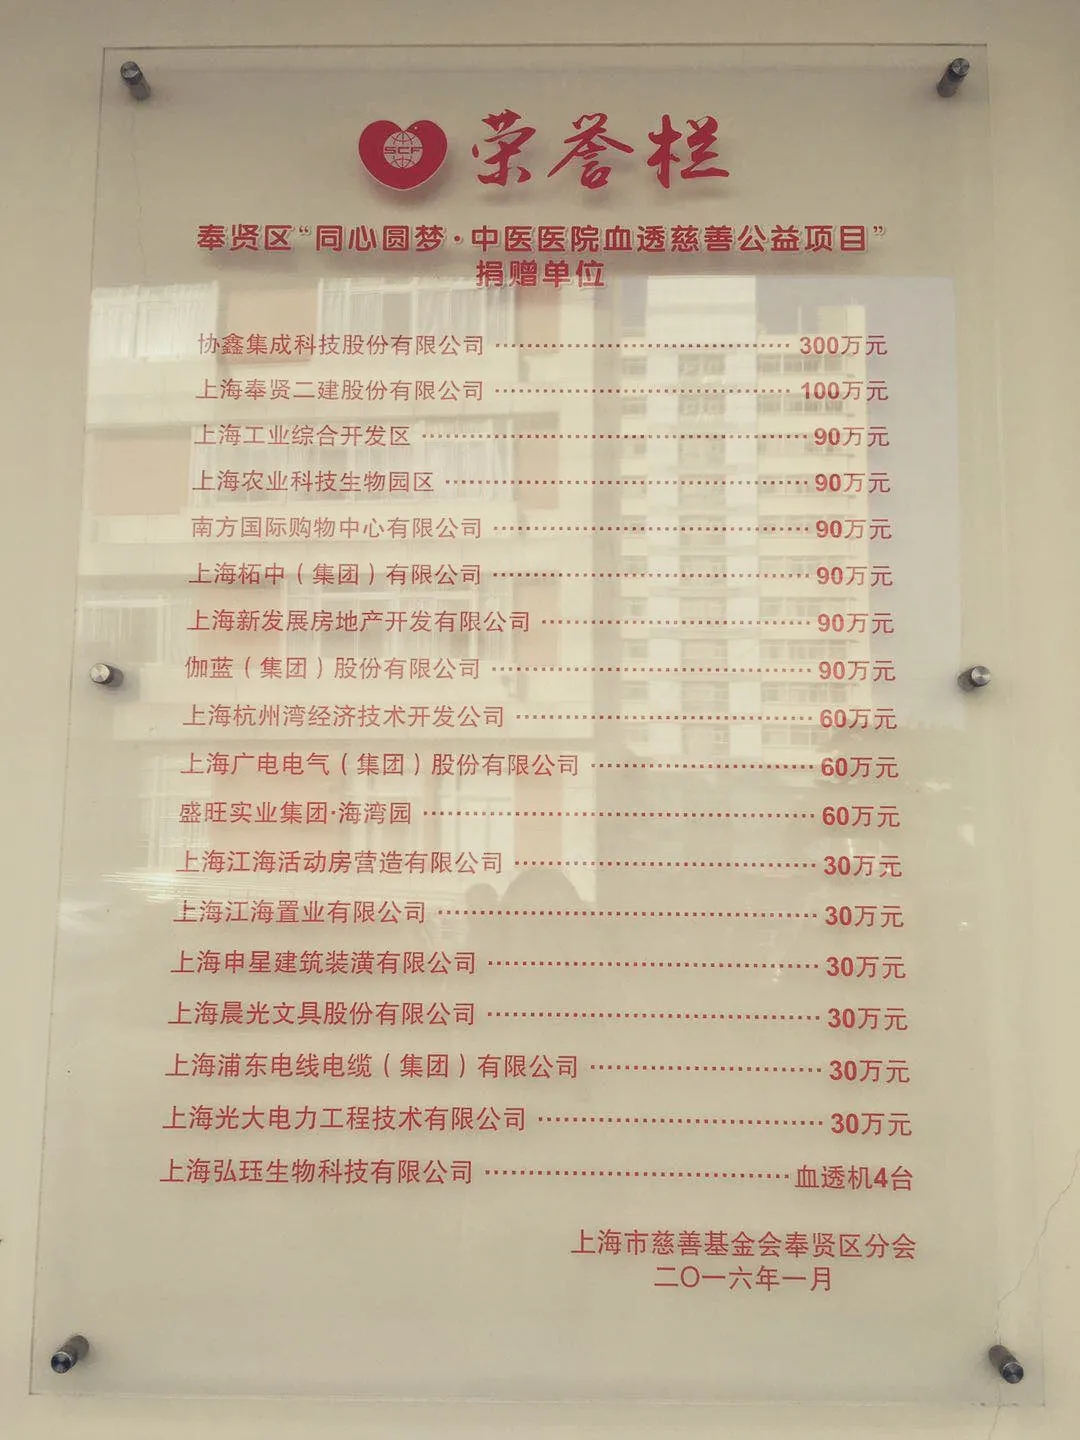 SCF 荣誉栏
奉贤区“同心圆梦·中医医院血透慈善公益项目”
捐赠单位
协鑫集成科技股份有限公司 300万元
上海奉贤二建股份有限公司 100万元
上海工业综合开发区 90万元
上海农业科技生物园区 90万元
南方国际购物中心有限公司 90万元
上海柘中（集团）有限公司 90万元
上海新发展房地产开发有限公司 90万元
伽蓝（集团）股份有限公司 90万元
上海杭州湾经济技术开发公司 60万元
上海广电电气（集团）股份有限公司 60万元
盛旺实业集团·海湾园 60万元
上海江海活动房营造有限公司 30万元
上海江海置业有限公司 30万元
上海申星建筑装潢有限公司 30万元
上海晨光文具股份有限公司 30万元
上海浦东电线电缆（集团）有限公司 30万元
上海光大电力工程技术有限公司 30万元
上海弘珏生物科技有限公司 血透机4台
上海市慈善基金会奉贤区分会
二〇一六年一月